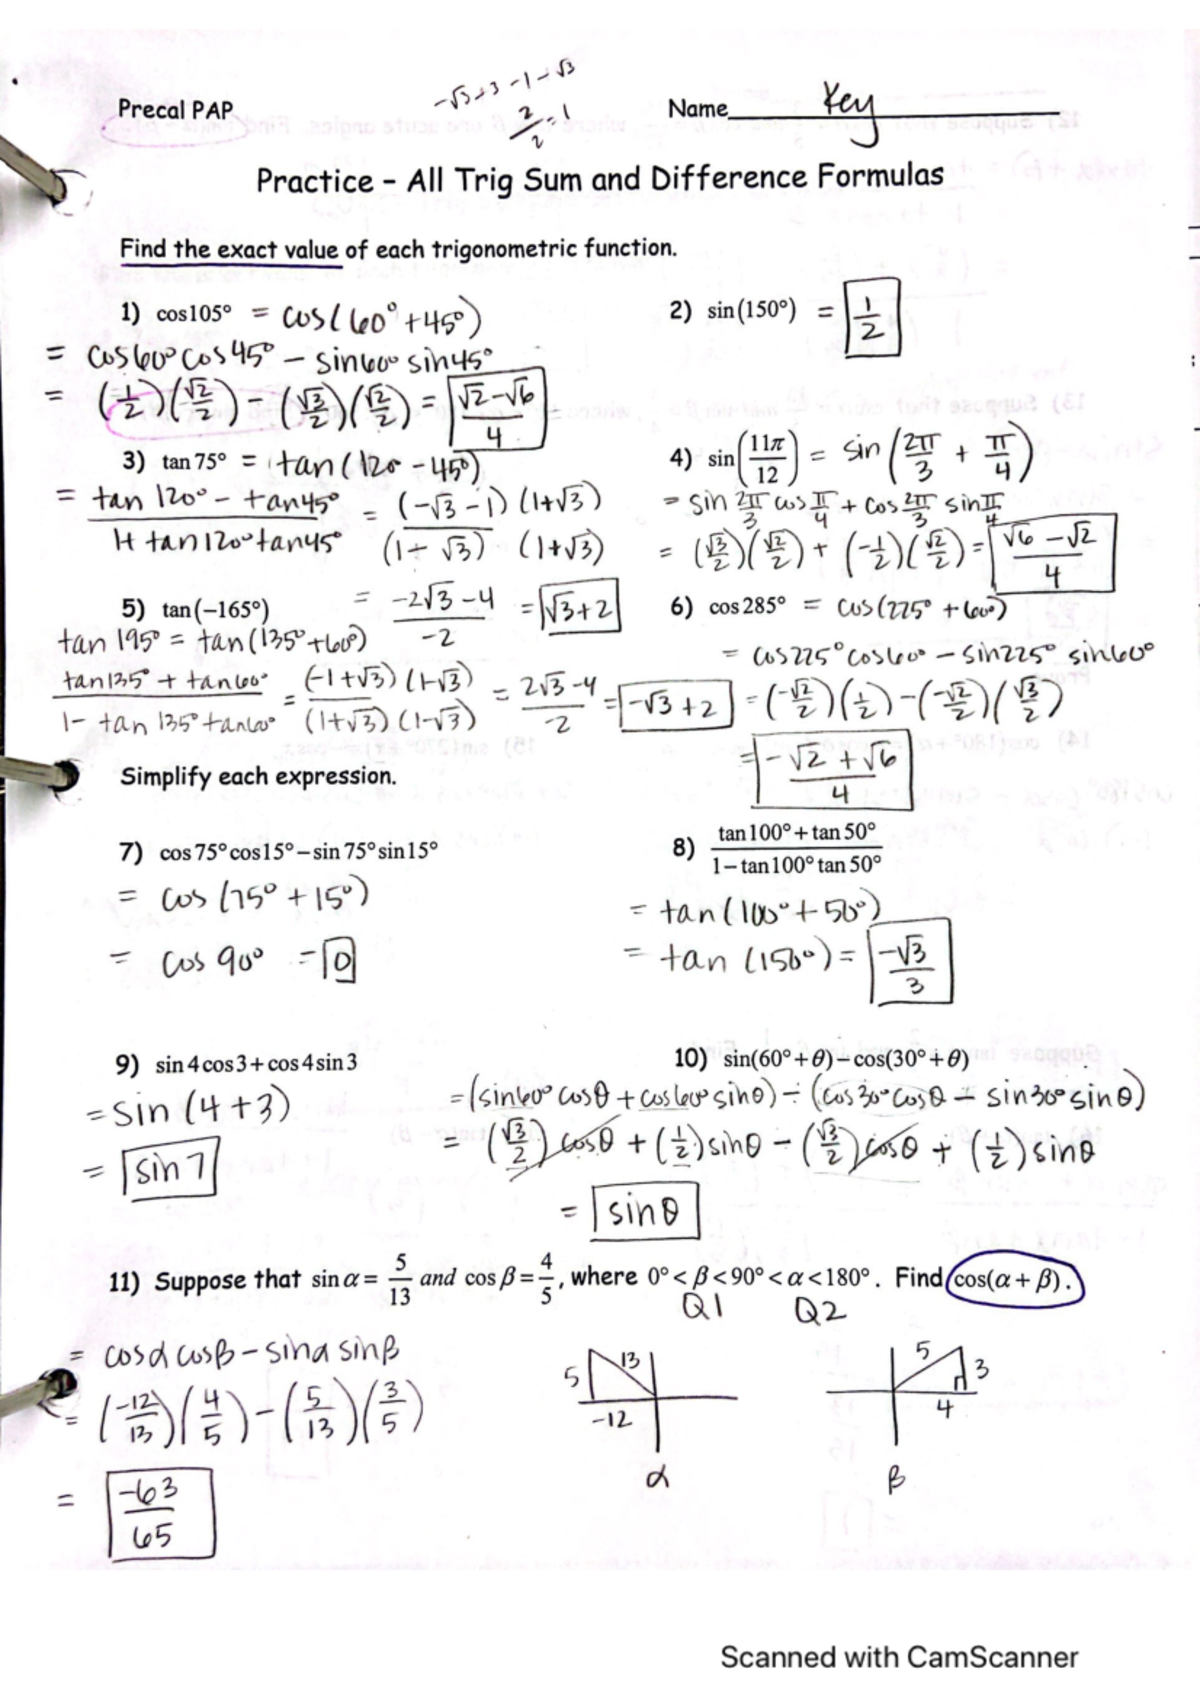 Precal PAP
-√3+3-1-√3
2/2=1
Name Key
Practice – All Trig Sum and Difference Formulas
Find the exact value of each trigonometric function.
1) cos105° = cos(60°+45°)
= cos60°cos45° – sin60°sin45°
= (1/2)(√2/2) – (√3/2)(√2/2) = √2-√6/4
2) sin(150°) = 1/2
3) tan 75° = tan(120-45°)
= tan 120° - tan45° / 1+ tan120°tan45° = (-√3-1)(1+√3) / (1-√3)(1+√3)
= -2√3-4 / -2 = √3+2
4) sin(11π/12) = sin(2π/3 + π/4)
= sin 2π/3 cos π/4 + cos 2π/3 sin π/4
= (√3/2)(√2/2) + (-1/2)(√2/2) = √6-√2/4
5) tan(–165°)
tan 195° = tan(135°+60°)
tan135° + tan60° / 1- tan 135°tan60° = (-1+√3)(1-√3) / (1+√3)(1-√3) = 2√3-4 / -2 = -√3+2
6) cos 285° = cos(225°+60°)
= cos225°cos60° – sin225° sin60°
= (-√2/2)(1/2)-(-√2/2)(√3/2)
= -√2+√6/4
Simplify each expression.
7) cos 75° cos15° – sin 75° sin15°
= cos(75°+15°)
= cos 90° = 0
8) tan100° + tan 50° / 1 – tan100° tan 50°
= tan(100°+50°)
= tan(150°) = -√3/3
9) sin 4 cos 3 + cos 4 sin 3
= sin(4+3)
= sin 7
10) sin(60° + θ) – cos(30° + θ)
= (sin60°cosθ + cos60°sinθ) – (cos30°cosθ – sin30°sinθ)
= (√3/2)cosθ + (1/2)sinθ – (√3/2)cosθ + (1/2)sinθ
= sinθ
11) Suppose that sin α = 5/13 and cos β = 4/5, where 0° < β < 90° < α < 180°. Find cos(α + β).
Q1 Q2
= cosα cosβ – sinα sinβ
= (-12/13)(4/5) – (5/13)(3/5)
= -63/65
5 13 -12 α
5 3 4 β
Scanned with CamScanner